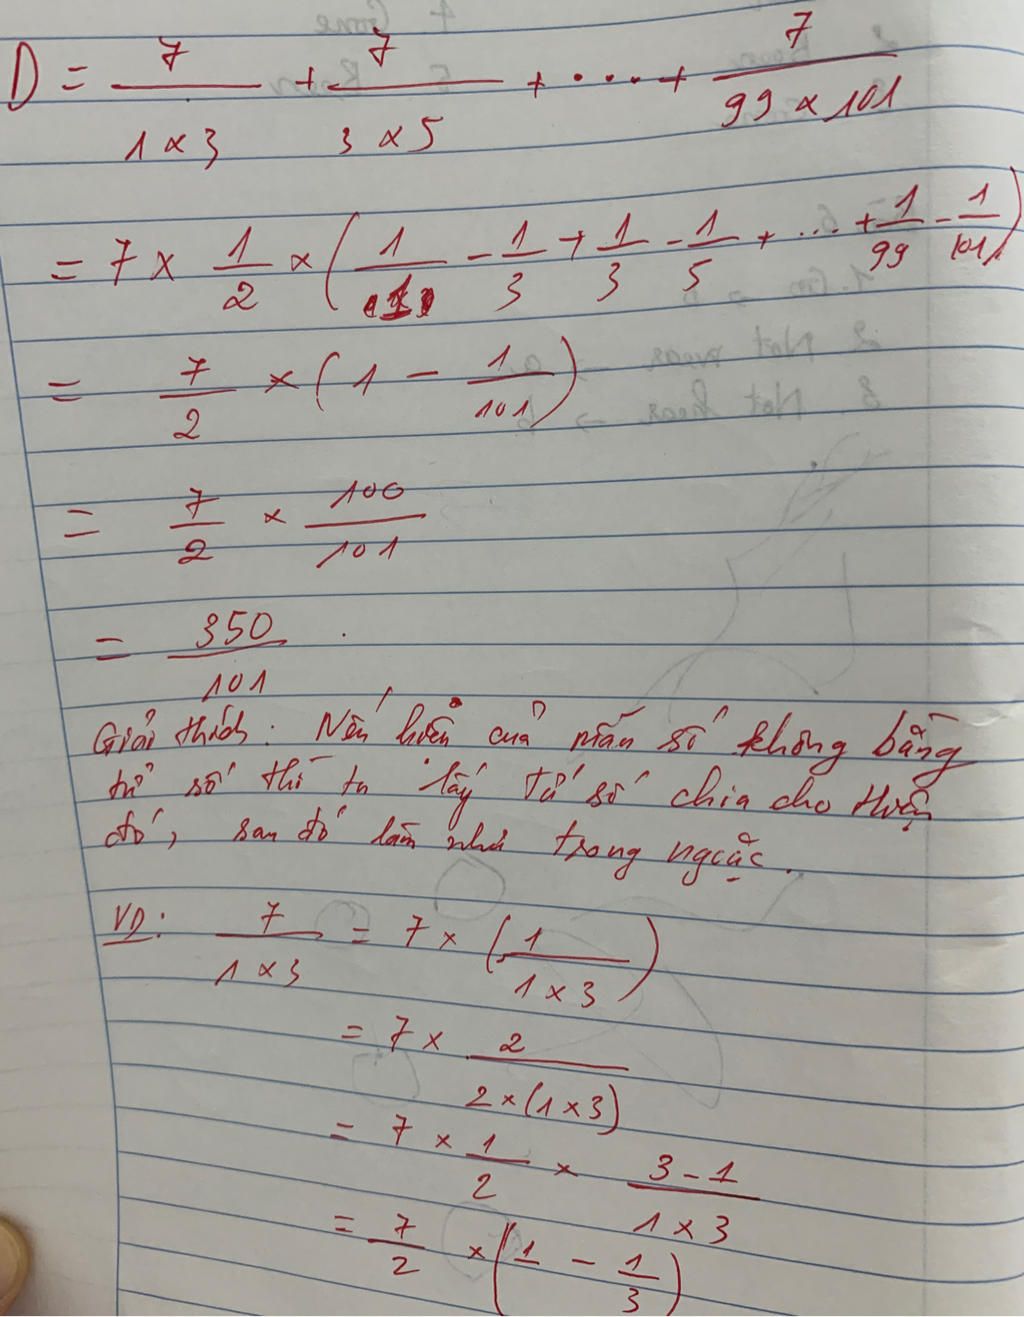 D = 7/(1 × 3) + 7/(3 × 5) + .... + 7/(99 × 101)
= 7 × 1/2 × (1/1 - 1/3 + 1/3 - 1/5 + ... + 1/99 - 1/101)
= 7/2 × (1 - 1/101)
= 7/2 × 100/101
= 350/101.
Giải thích: Nếu hiệu của mẫu số không bằng
tử số thì ta lấy tử số chia cho hiệu
đó, sau đó làm như trong ngoặc.
VD: 7/(1 × 3) = 7 × (1/(1 × 3))
= 7 × 2/(2 × (1 × 3))
= 7 × 1/2 × (3 - 1)/(1 × 3)
= 7/2 × (1 - 1/3)